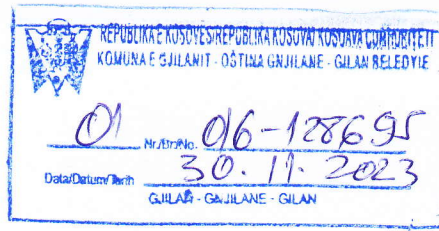 REPUBLIKA E KOSOVËS/REPUBLIKA KOSOVA/KOSOVA CUMHURİYETİ
KOMUNA E GJILANIT - OPŠTINA GNJILANE - GILAN BELEDYIE
01 Nr./Br./No. 016-128695
Data/Datum/Tarih 30.11.2023
GJILAN - GNJILANE - GILAN